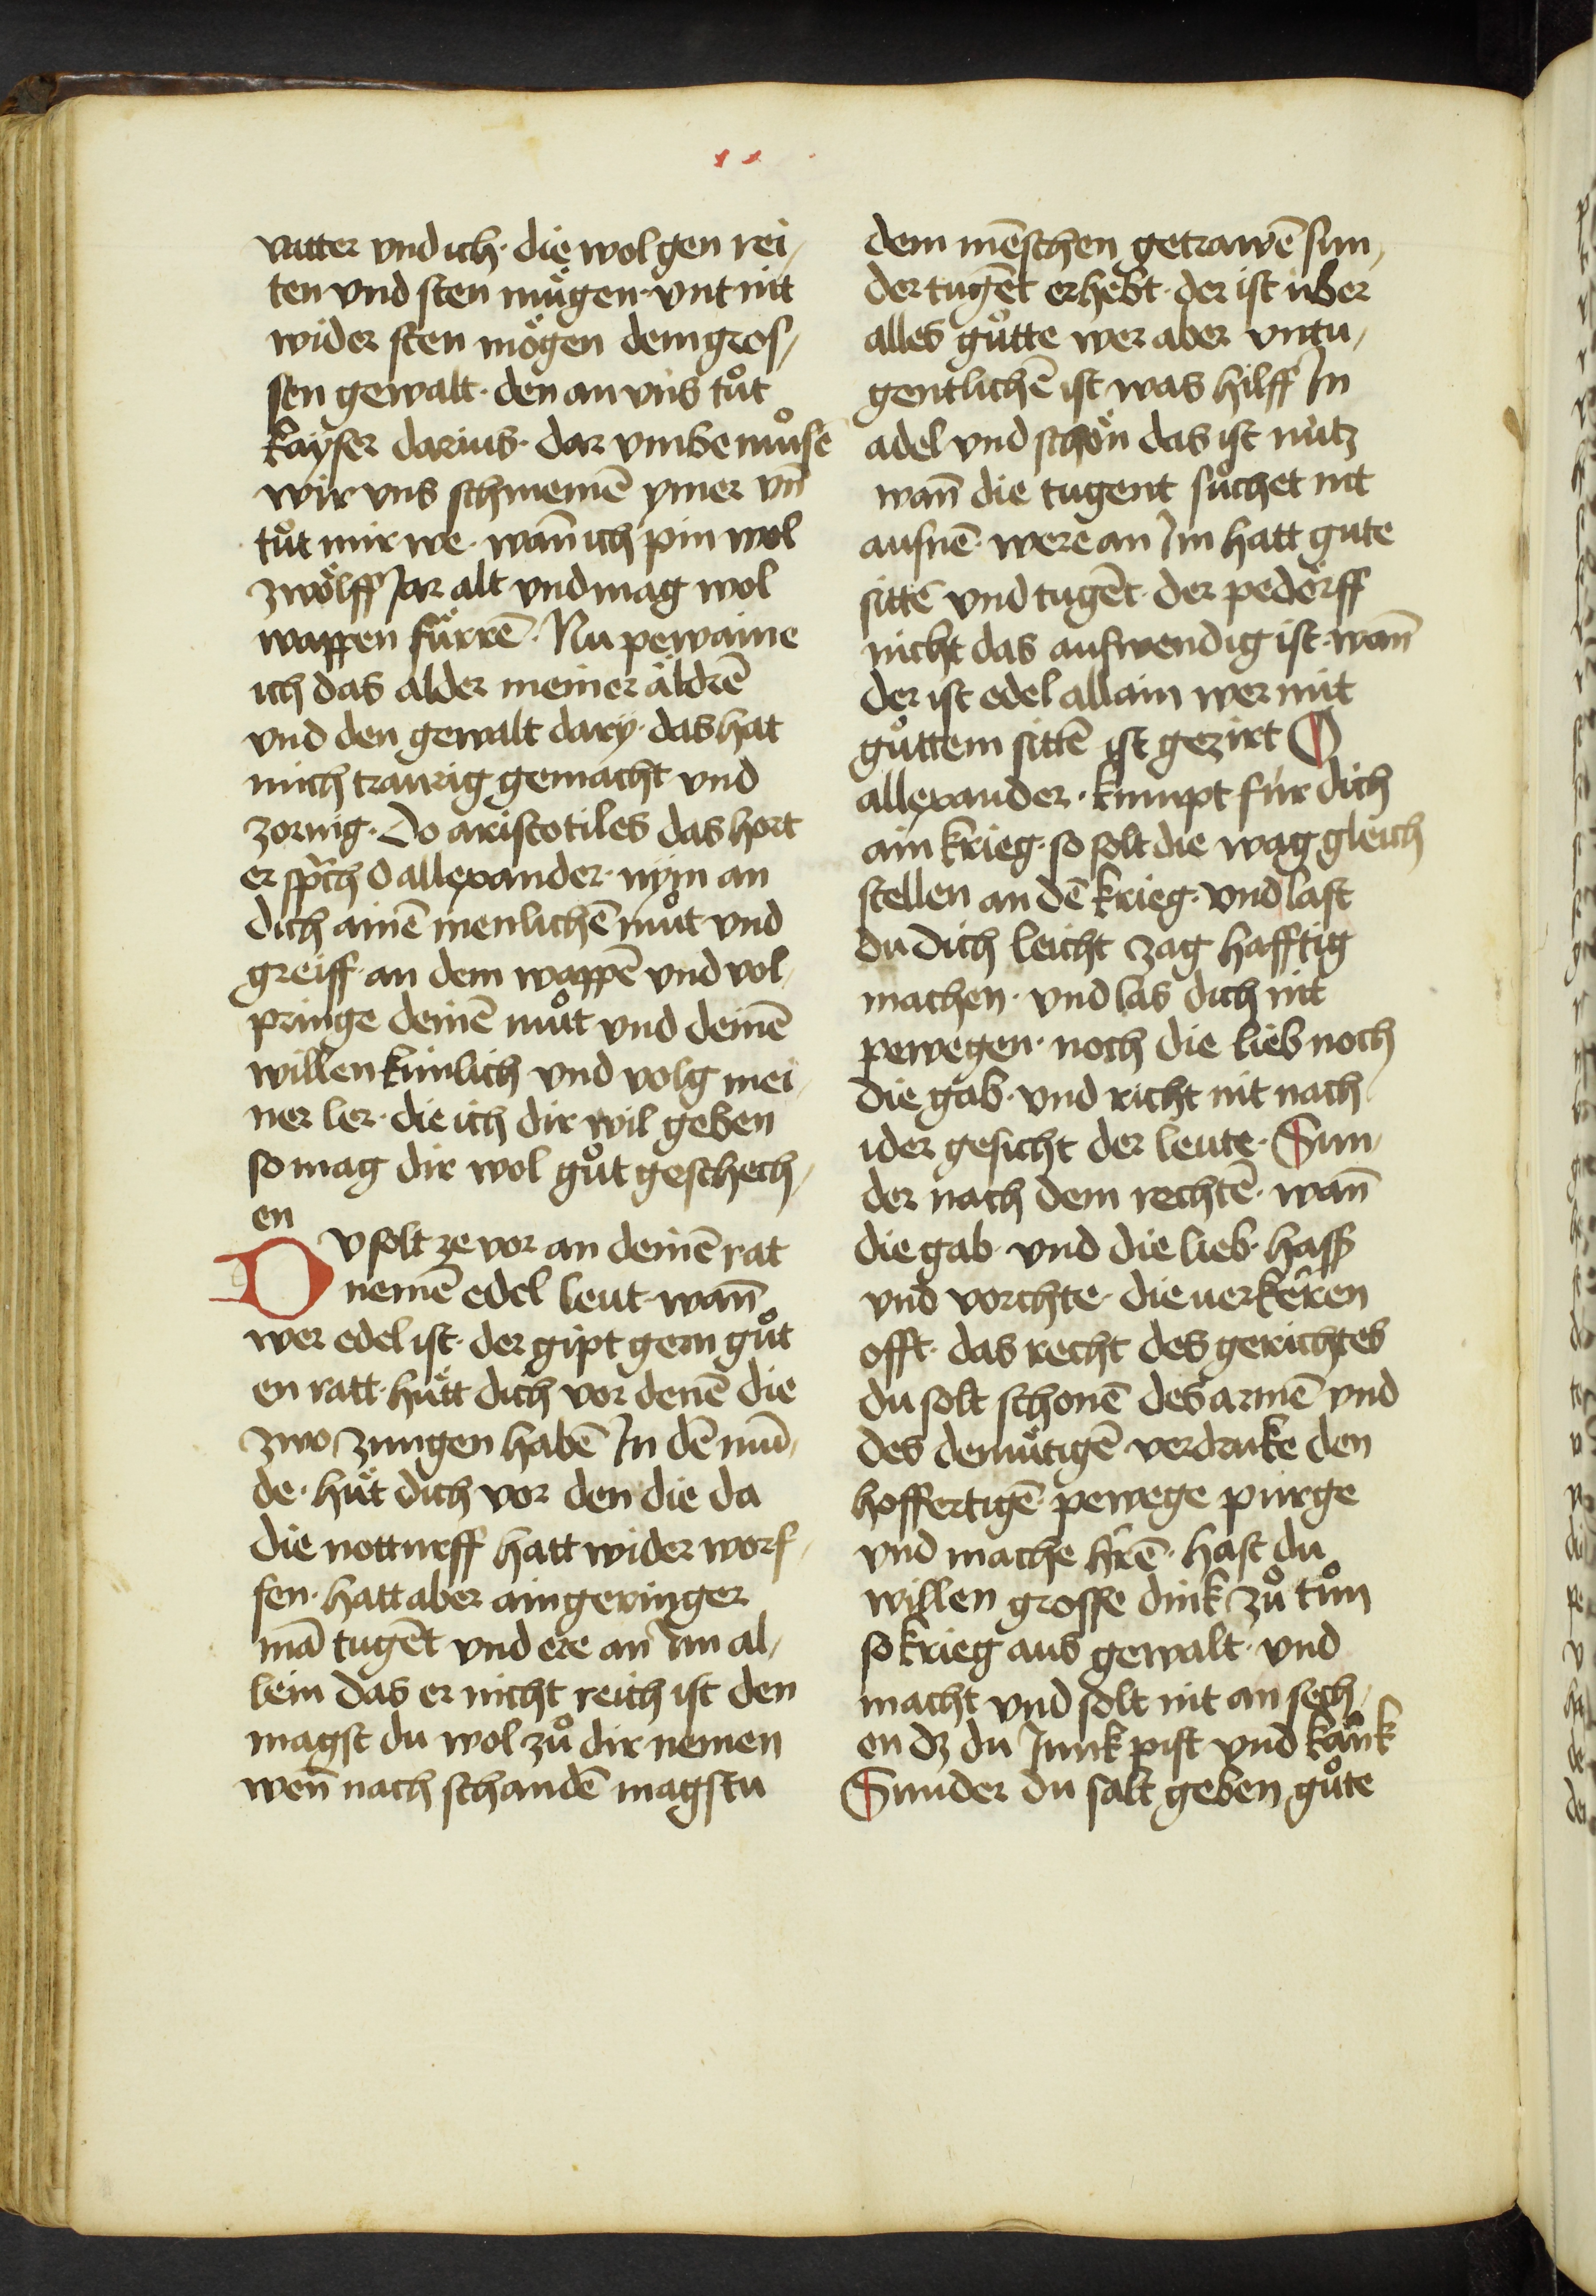 x x
vatter vnd ich · die wol gen rei,
ten vnd sten mügen · vnt nit
wider sten mögen dem gros,
sen gewalt · den an vns tůt
kayser darius · dar vmbe můsē
wir vns schmemē ymer vn̄
tůt mir we · wan̄ ich pin wol
zwölff Jar alt vnd mag wol
wappen fürrē · Nu pewaine
ich das alder meiner äldrē
vnd den gewalt dary · das hat
mich traurig gemacht vnd
zornig · Do aristotiles das hort
er sprch O allexander · nym an
dich ainē menlichē můt vnd
greiff · an dem wappē vnd vol,
pringe deinē můt vnd deinē
willen künlich vnd volg mei,
ner ler · die ich dir wil geben
so mag dir wol gůt geschech,
en
DV solt ze vor an deinē rat
nemē edel leut · wan̄
wer edel ist · der gipt gern gůt
en ratt · hütt dich vor denē die
zwo zungen habē In dē mū,
de · hüt dich vor den die da
die notturff hatt wider worf,
fen · hatt aber ain geringer
mā tugēt vnd ere an Im al,
lein das er nicht reich ist den
magst du wol zů dir nemen
wen̄ nach schandē magstu
dem mēschen getrawē sun,
der tugēt erhebt · der ist über
alles gůtte wer aber vntu,
gentlichē ist was hilff In
adel vnd schön das ist nutz
wan̄ die tugent sůchet nit
ausnē · were an Im hatt gute
sittē vnd tugēt · der pedörff
nicht das auswendig ist · wan̄
der ist edel allain wer mit
gůttem sittē ist gezirt O
allexander · kumpt für dich
ain krieg · so solt die wag gleich
stellen an dē krieg · vnd last
du dich leicht zag hafftig
machen · vnd las dich nit
pewegen · noch die lieb noch
die gab · vnd richt nit nach
ider gesicht der leute · Sun,
der nach dem rechtē · wan̄
die gab · vnd die lieb · hass
vnd vorchte · die uerkeren
offt · das recht des gerichtes
du solt schonē des armē vnd
des demütigē verdruke den
hoffertigē · pewege purge
vnd mache hrē · hast du
willen grosse dink zů tůn
so krieg aus gewalt · vnd
macht vnd solt nit an sech,
en dz du Junk pist vnd kank
Sunder du salt geben gůte